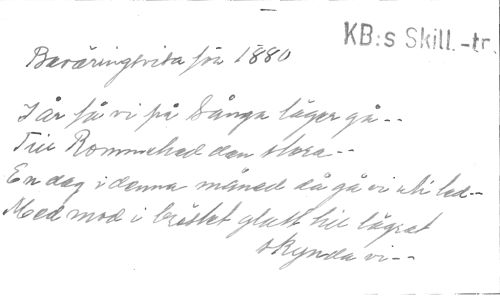 KB:s Skill.-tr.
Beväringsvisa från 1880
I år få vi på Långa läger gå --
Till Rommehed den stora --
En dag i denna månad då gå vi uti led --
Med mod i bröstet glatt till lägret
skynda vi --